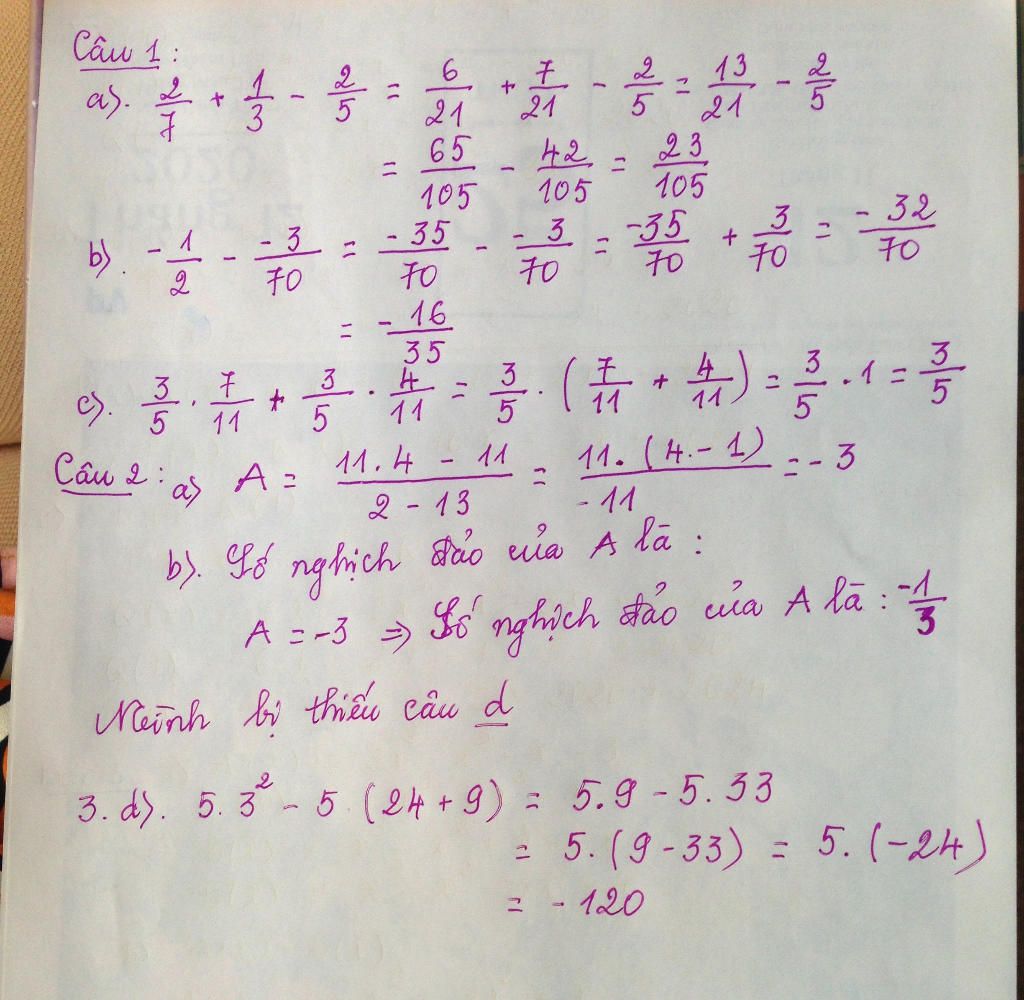 Câu 1 :
a). 2/7 + 1/3 - 2/5 = 6/21 + 7/21 - 2/5 = 13/21 - 2/5
= 65/105 - 42/105 = 23/105
b). -1/2 - -3/70 = -35/70 - -3/70 = -35/70 + 3/70 = -32/70
= -16/35
c). 3/5 . 7/11 + 3/5 . 4/11 = 3/5 . (7/11 + 4/11) = 3/5 . 1 = 3/5
Câu 2 : a) A = (11.4 - 11)/(2 - 13) = 11.(4.-1)/-11 = -3
b). Số nghịch đảo của A là :
A = -3 => Số nghịch đảo của A là : -1/3
Mình bị thiếu câu d
3. d). 5.3² - 5.(24+9) = 5.9 - 5.33
= 5.(9-33) = 5.(-24)
= -120